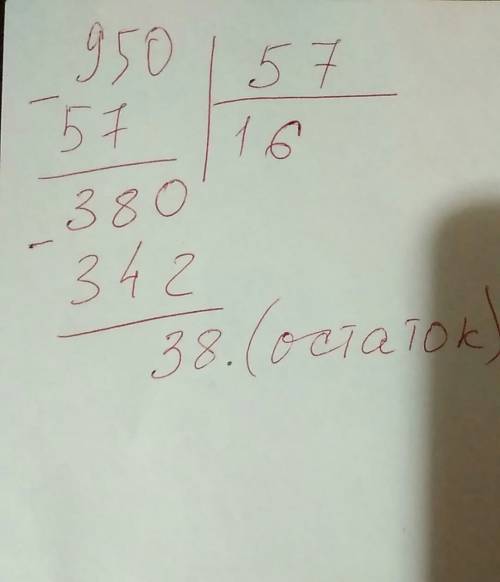 950 57
- 57 16
380
- 342
38. (остаток)